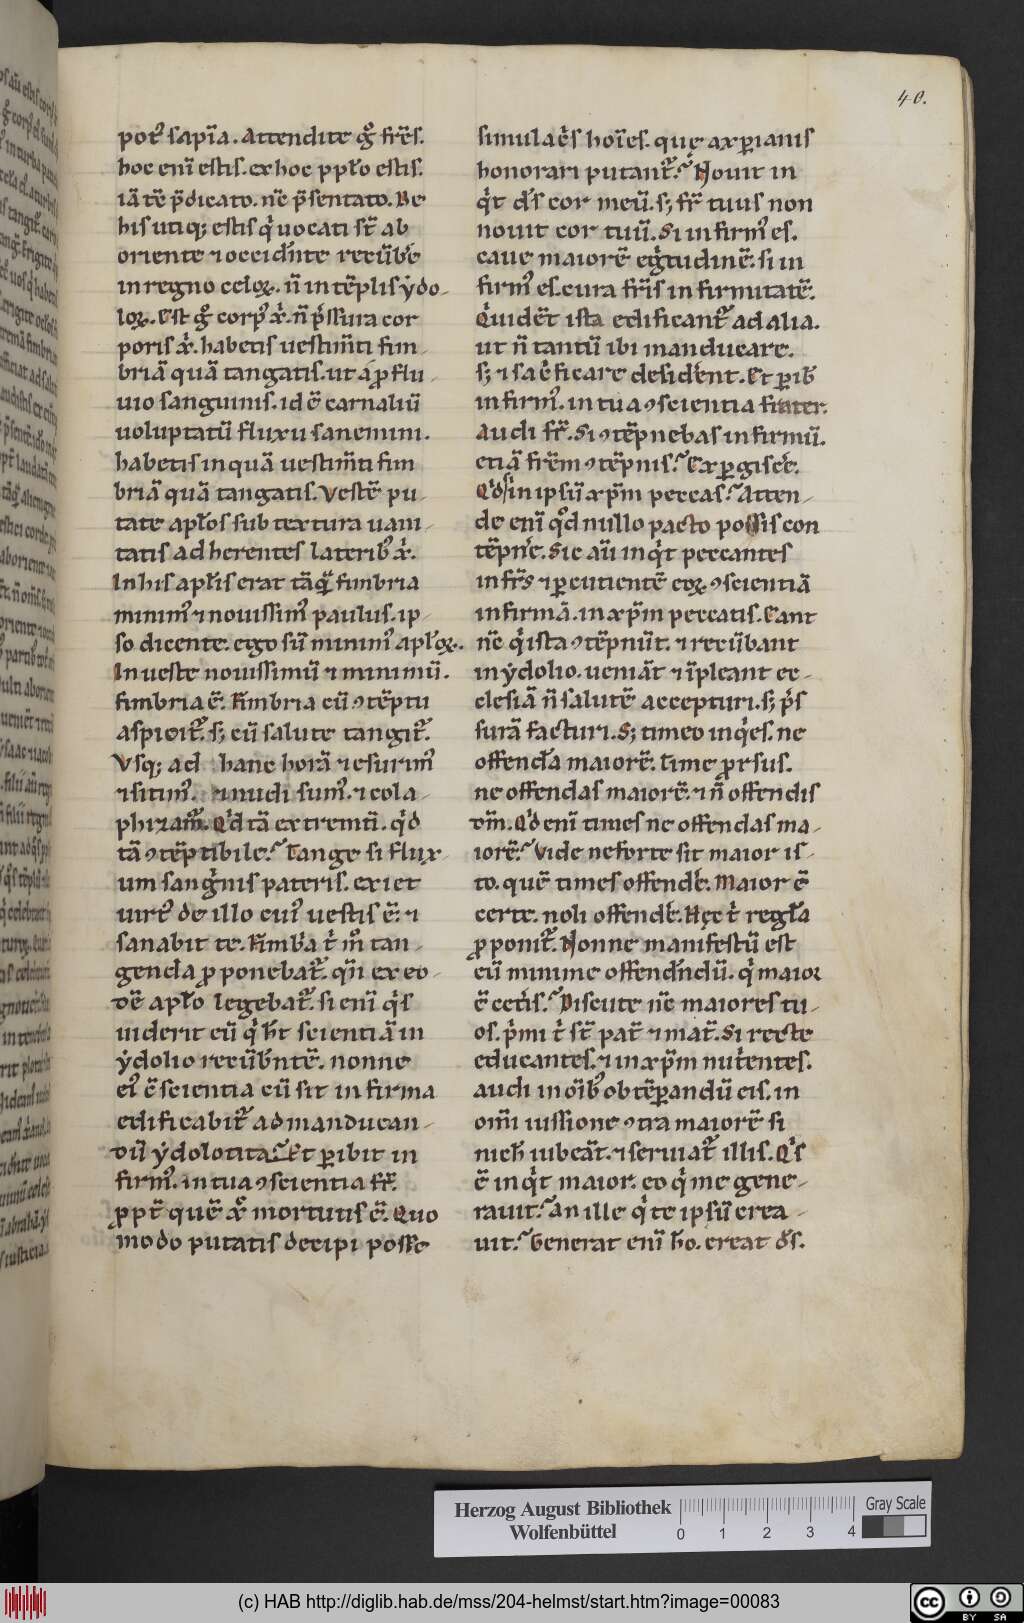 40.
potꝰ sapīa. Attendite gͦ frēs.
hoc enī estis. ex hoc pplo estis.
iā tē p̄dicato. nē p̄sentato. De
his utiqꝫ estis qͥ uocati st̄ ab
oriente ⁊ occidn̄te recūbe
in regno celoꝝ. n̄ in tēplis ẏdo-
loꝝ. Est gͦ corpꝰ xͥ. n̄ p̄ssura cor
poris xͥ. habetis uestim̄ti fim
briā quā tangatis. ut a ꝓflu-
uio sanguinis. id ē carnaliū
uoluptatū fluxu sanemini.
habetis inquā uestim̄ti fim
briā quā tangatis. Vestē pu-
tate aplos sub textura uani-
tatis adherentes lateribꝰ xͥ.
In his aplis erat tāqͣ fimbria
minimꝰ ⁊ nouissimꝰ paulus. ip-
so dicente. ego sū minimꝰ aploꝝ.
In ueste nouissimū ⁊ minimū.
fimbria ē. Fimbria cū ꝯtēptu
aspicit᷑. sꝫ cū salute tangit᷑.
Vsqꝫ ad hanc horā ⁊ esurimꝰ
⁊ sitimꝰ. ⁊ nudi sumꝰ. ⁊ cola-
phizam᷑. Qͥd tā extremū. qͥd
tā ꝯtēptibile? Tange si flux-
um sangͥnis pateris. exiet
uirtꝰ de illo cuiꝰ uestis ē. ⁊
sanabit te. Fimbͥa tͥ mͦ tan-
genda ꝓponebat᷑. qn̄ ex eo-
dē aplo legebat᷑. si enī qͥs
uiderit eū qͥ ht̄ scientiā in
ẏdolio recūbntē. nonne
eiꝰ ꝯscientia cū sit infirma
edificabit᷑ ad manducan-
dū ẏdolotita? Et ꝑibit in
firmꝰ. in tua ꝯscientia fr̄.
ꝓpt̄ quē xͦ mortuus ē. Quo
modo putatis decipi posse
simulacͥs hoīes. quę a xp̄ianis
honorari putant᷑? Nouit in
qͥt ds̄ cor meū. sꝫ fr̄ tuus non
nouit cor tuū. Si infirmꝰ es.
caue maiorē egͥtudinē. si in
firmꝰ es. cura fr̄is infirmitatē.
Qui dēt ista edificant᷑ ad alia.
ut n̄ tantū ibi manducare.
sꝫ ⁊ sacͥficare desiderent. Et ꝑibit
infirmꝰ. in tua ꝯscientia frater.
Audi fr̄. Si ꝯtēpnebas infirmū.
etiā frēm ꝯtēpnis? Expgiscere.
Qͥd si in ipsū xp̄m peccas? Atten-
de enī qͦd nullo pacto possis con
tēpne. Sic aū inqͥt peccantes
in fr̄s ⁊ ꝑcutientē eoꝝ ꝯscientiā
infirmā. in xp̄m peccatis. Eant
nē qͥ ista ꝯtēpnūt. ⁊ recūbant
in ẏdolio. ueniāt ⁊ īpleant ec-
clesiā n̄ salutē accepturi. sꝫ p̄s
surā facturi. Sꝫ timeo inqͥes. ne
offendā maiorē. Time ꝓrsus.
ne offendas maiorē. ⁊ n̄ offendis
dm̄. Qͥd enī times ne offendas ma-
iorē? Vide ne forte sit maior is-
to. quē times offende. Maior ē
certe. noli offende. Hęc tͥ regula
ꝓponit᷑. Nonne manifestū est
eū minime offendn̄dū. qͥ maior
ē cetͥs? Discute nē maiores tu-
os. pͥmi tͥ st̄ pat̄ ⁊ mat̄. Si recte
educantes. ⁊ in xp̄m nutͥentes.
audi in oībꝰ obtēꝑandū eis. in
omī iussione ꝯtra maiorē si
nich̄ iubeāt. ⁊ seruiat᷑ illis. Qͥs
ē inqͥt maior. eo qͥ me gene-
rauit? An ille qͥ te ipsū crea-
uit? Generat enī ho. creat ds̄.
Herzog August Bibliothek
Wolfenbüttel
0 1 2 3 4
Gray Scale
(c) HAB http://diglib.hab.de/mss/204-helmst/start.htm?image=00083
cc BY SA